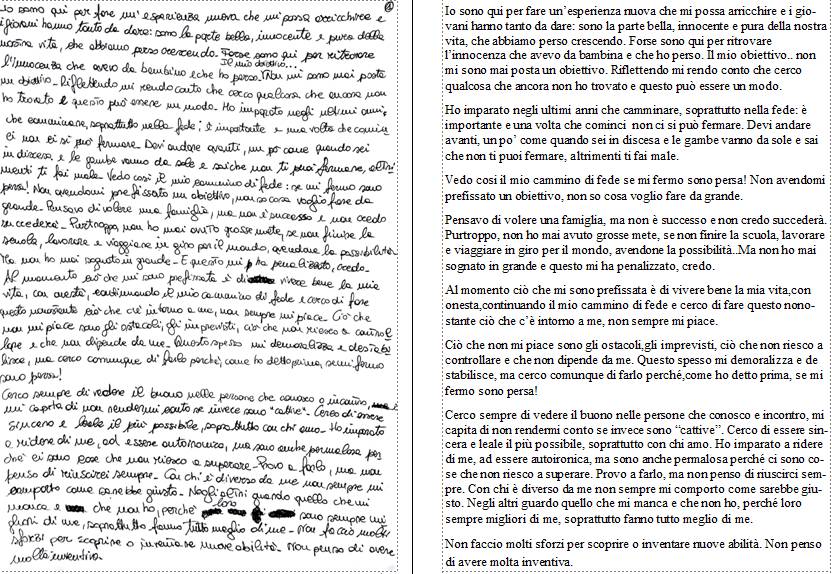 Io sono qui per fare un'esperienza nuova che mi possa arricchire e
i giovani hanno tanto da dare: sono la parte bella, innocente e pura della
nostra vita, che abbiamo perso crescendo. Forse sono qui per ritrovare
Il mio obiettivo...
l'innocenza che avevo da bambina e che ho perso. Non mi sono mai posta
un obiettivo - Riflettendo mi rendo conto che cerco qualcosa che ancora non
ho trovato e questo può essere un modo. Ho imparato negli ultimi anni,
che camminare, soprattutto nella fede, è importante e una volta che cominci
ci non ci si può fermare. Devi andare avanti, un po' come quando sei
in discesa e le gambe vanno da sole e sai che non ti puoi fermare, altri
menti ti fai male. Vedo così il mio cammino di fede: se mi fermo sono
persa! Non avendomi prefissato un obiettivo, non so cosa voglio fare da
grande. Pensavo di volere una famiglia, ma non è successo e non credo
succederà. Purtroppo, non ho mai avuto grosse mete, se non finire la
scuola, lavorare e viaggiare in giro per il mondo, avendone la possibilità..
Ma non ho mai sognato in grande - E questo mi ha penalizzato, credo.
Al momento ciò che mi sono prefissata è di vivere bene la mia
vita, con onestà, continuando il mio cammino di fede e cerco di fare
questo nonostante ciò che c'è intorno a me, non sempre mi piace. Ciò che
non mi piace sono gli ostacoli, gli imprevisti, ciò che non riesco a control
lare e che non dipende da me. Questo spesso mi demoralizza e destabi
lisce, ma cerco comunque di farlo perché, come ho detto prima, se mi fermo
sono persa!
Cerco sempre di vedere il buono nelle persone che conosco e incontro,
mi capita di non rendermi conto se invece sono "cattive". Cerco di essere
sincera e leale il più possibile, soprattutto con chi amo. Ho imparato
a ridere di me, ad essere autoironica, ma sono anche permalosa per
ché ci sono cose che non riesco a superare. Provo a farlo, ma non
penso di riuscirci sempre. Con chi è diverso da me non sempre mi
comporto come sarebbe giusto - Negli altri guardo quello che mi
manca e che non ho, perché loro sono sempre mi
gliori di me, soprattutto fanno tutto meglio di me - Non faccio molti
sforzi per scoprire o inventare nuove abilità. Non penso di avere
molta inventiva.
Io sono qui per fare un'esperienza nuova che mi possa arricchire e i gio-
vani hanno tanto da dare: sono la parte bella, innocente e pura della nostra
vita, che abbiamo perso crescendo. Forse sono qui per ritrovare
l'innocenza che avevo da bambina e che ho perso. Il mio obiettivo.. non
mi sono mai posta un obiettivo. Riflettendo mi rendo conto che cerco
qualcosa che ancora non ho trovato e questo può essere un modo.
Ho imparato negli ultimi anni che camminare, soprattutto nella fede: è
importante e una volta che cominci non ci si può fermare. Devi andare
avanti, un po' come quando sei in discesa e le gambe vanno da sole e sai
che non ti puoi fermare, altrimenti ti fai male.
Vedo così il mio cammino di fede se mi fermo sono persa! Non avendomi
prefissato un obiettivo, non so cosa voglio fare da grande.
Pensavo di volere una famiglia, ma non è successo e non credo succederà.
Purtroppo, non ho mai avuto grosse mete, se non finire la scuola, lavorare
e viaggiare in giro per il mondo, avendone la possibilità..Ma non ho mai
sognato in grande e questo mi ha penalizzato, credo.
.Al momento ciò che mi sono prefissata è di vivere bene la mia vita,con
onesta,continuando il mio cammino di fede e cerco di fare questo nono-
stante ciò che c'è intorno a me, non sempre mi piace.
Ciò che non mi piace sono gli ostacoli,gli imprevisti, ciò che non riesco a
controllare e che non dipende da me. Questo spesso mi demoralizza e de
stabilisce, ma cerco comunque di farlo perché,come ho detto prima, se mi
fermo sono persa!
Cerco sempre di vedere il buono nelle persone che conosco e incontro, mi
capita di non rendermi conto se invece sono "cattive". Cerco di essere sin-
cera e leale il più possibile, soprattutto con chi amo. Ho imparato a ridere
di me, ad essere autoironica, ma sono anche permalosa perché ci sono co-
se che non riesco a superare. Provo a farlo, ma non penso di riuscirci sem-
pre. Con chi è diverso da me non sempre mi comporto come sarebbe giu-
sto. Negli altri guardo quello che mi manca e che non ho, perché loro
sempre migliori di me, soprattutto fanno tutto meglio di me.
Non faccio molti sforzi per scoprire o inventare nuove abilità. Non penso
di avere molta inventiva.